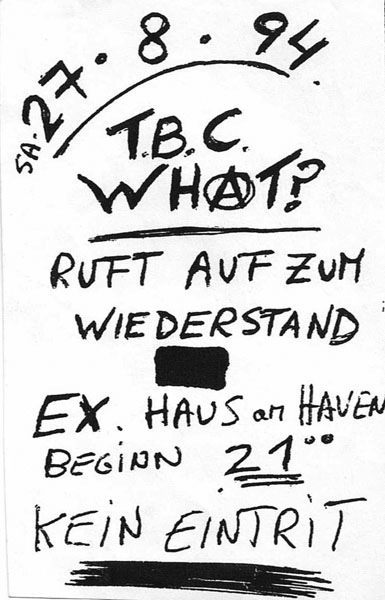 SA. 27.8.94.
T.B.C.
WHAT?
RUFT AUF ZUM
WIEDERSTAND
EX. HAUS am HAVEN
BEGINN 21°°
KEIN EINTRIT